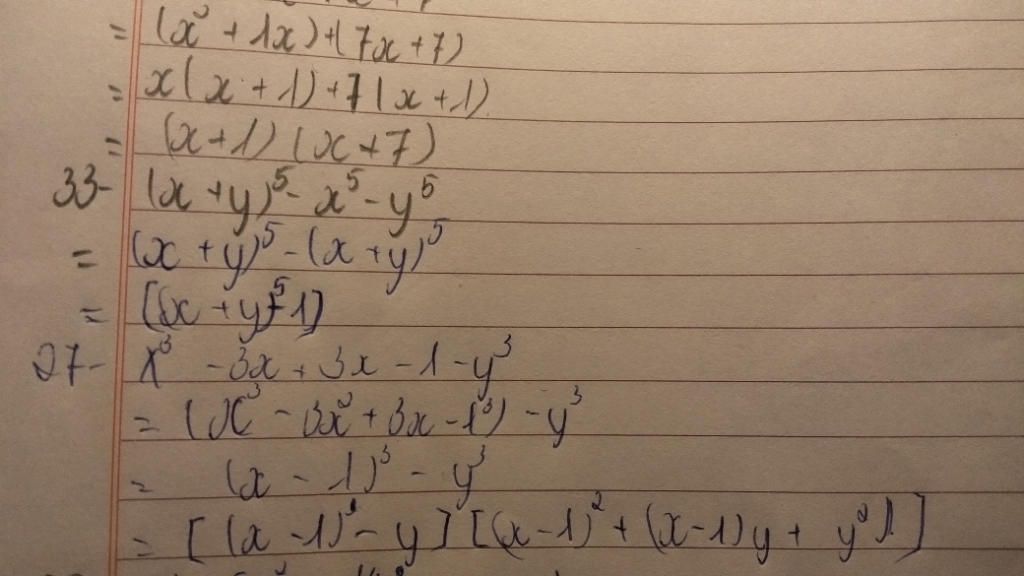 = (x² + 1x) + (7x + 7)
= x(x + 1) + 7(x + 1)
= (x + 1) (x + 7)
33- (x + y)⁵ - x⁵ - y⁵
= (x + y)⁵ - (x + y)⁵
= [(x + y)⁵ - 1]
27- x³ - 3x + 3x - 1 - y³
= (x³ - 3x² + 3x - 1³) - y³
= (x - 1)³ - y³
= [(x - 1)¹ - y] [(x - 1)² + (x - 1)y + y²]